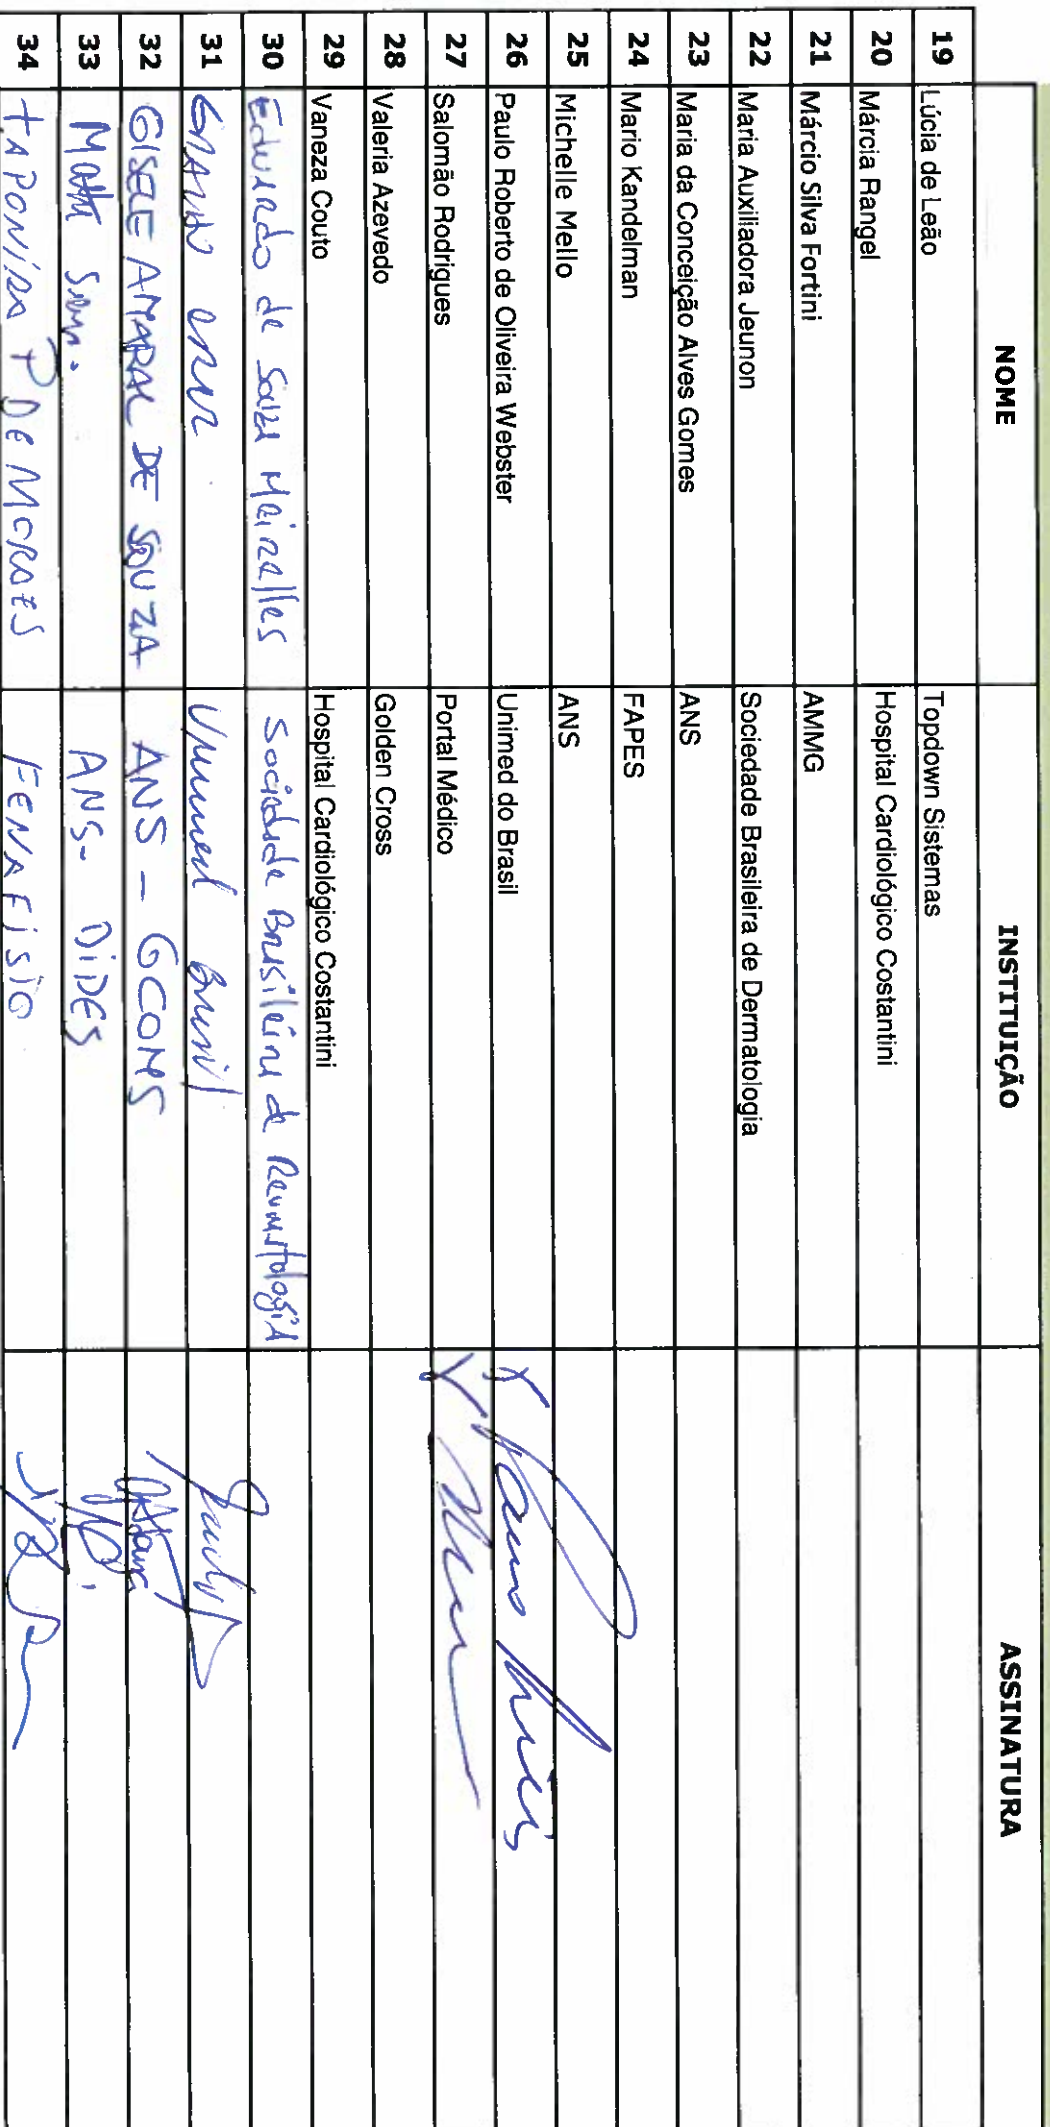 NOME INSTITUIÇÃO ASSINATURA
19 Lúcia de Leão Topdown Sistemas
20 Márcia Rangel Hospital Cardiológico Costantini
21 Márcio Silva Fortini AMMG
22 Maria Auxiliadora Jeunon Sociedade Brasileira de Dermatologia
23 Maria da Conceição Alves Gomes ANS
24 Mario Kandelman FAPES
25 Michelle Mello ANS
26 Paulo Roberto de Oliveira Webster Unimed do Brasil
27 Salomão Rodrigues Portal Médico
28 Valeria Azevedo Golden Cross
29 Vaneza Couto Hospital Cardiológico Costantini
30 Eduardo de Souza Meirelles Sociedade Brasileira de Reumatologia
31 Unimed Brasil
32 GISELE AMARAL DE SOUZA ANS - GCOMS
33 ANS - DIDES
34 P DE MORAES FENAFISIO